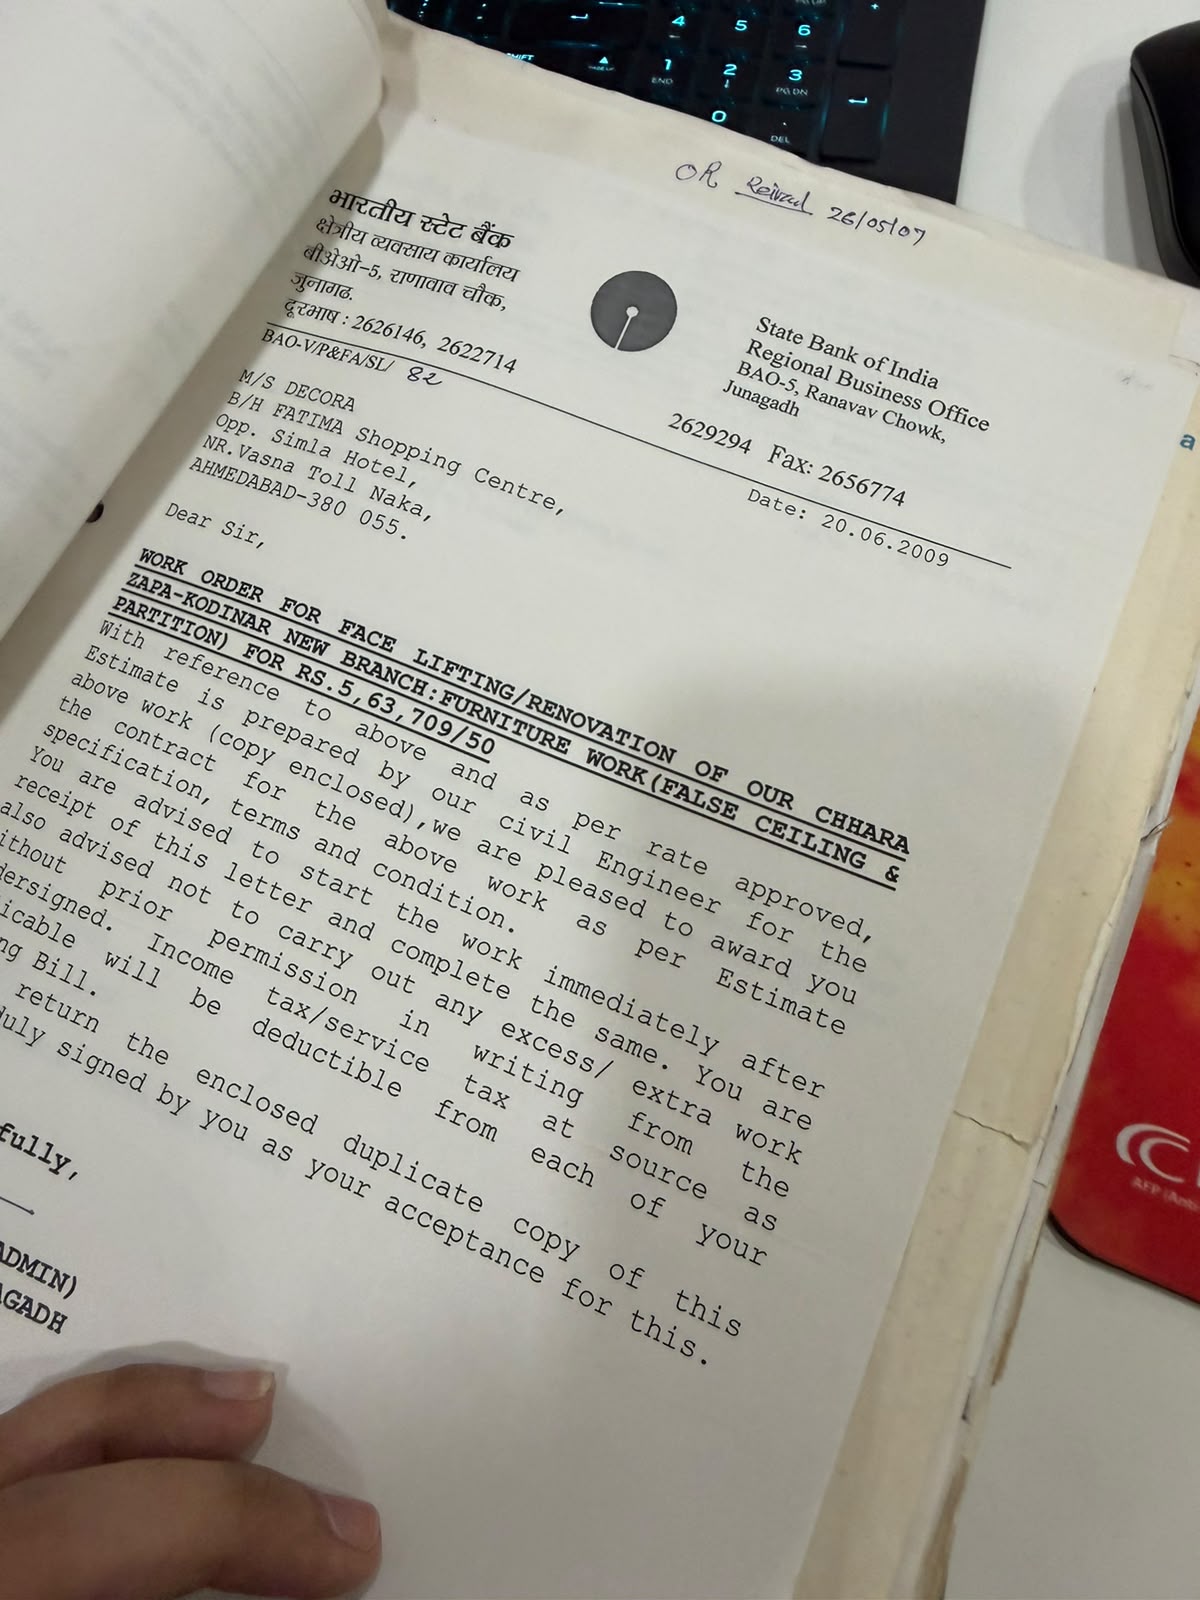 OR 26/05/07
भारतीय स्टेट बैंक
क्षेत्रीय व्यवसाय कार्यालय
बीअेओ-5, राणावाव चौक,
जुनागढ.
दूरभाष : 2626146, 2622714
State Bank of India
Regional Business Office
BAO-5, Ranavav Chowk,
Junagadh
2629294 Fax: 2656774
BAO-V/P&FA/SL/ 82
Date: 20.06.2009
M/S DECORA
B/H FATIMA Shopping Centre,
Opp. Simla Hotel,
NR.Vasna Toll Naka,
AHMEDABAD-380 055.
Dear Sir,
WORK ORDER FOR FACE LIFTING/RENOVATION OF OUR CHHARA
ZAPA-KODINAR NEW BRANCH:FURNITURE WORK(FALSE CEILING &
PARTITION) FOR RS.5,63,709/50
With reference to above and as per rate approved,
Estimate is prepared by our civil Engineer for the
above work (copy enclosed),we are pleased to award you
the contract for the above work as per Estimate
specification, terms and condition.
You are advised to start the work immediately after
receipt of this letter and complete the same. You are
also advised not to carry out any excess/ extra work
ithout prior permission in writing from the
dersigned. Income tax/service tax at source as
icable will be deductible from each of your
ng Bill.
return the enclosed duplicate copy of this
duly signed by you as your acceptance for this.
fully,
ADMIN)
AGADH
4 5 6
1 2 3
END PG DN
0 .
DEL
SHIFT
a